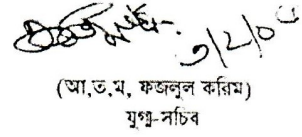 ৩/২/০৫
(আ,ত,ম, ফজলুল করিম)
যুগ্ম-সচিব